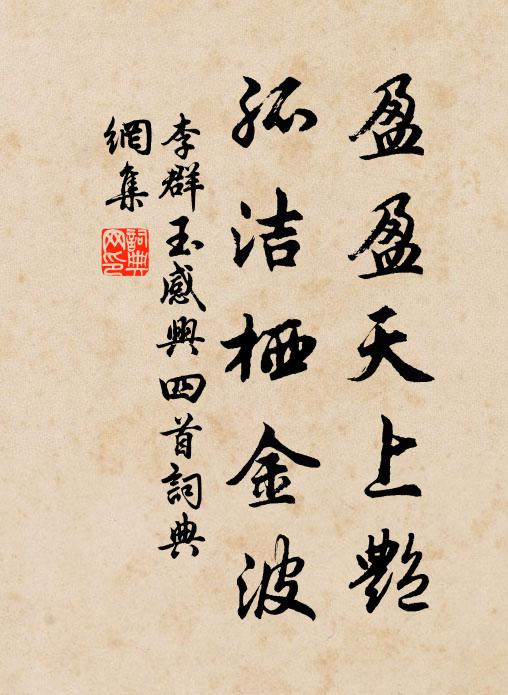 盈盈天上艷
孤洁栖金波
李群玉感興四首詞典
網集
詞典網印